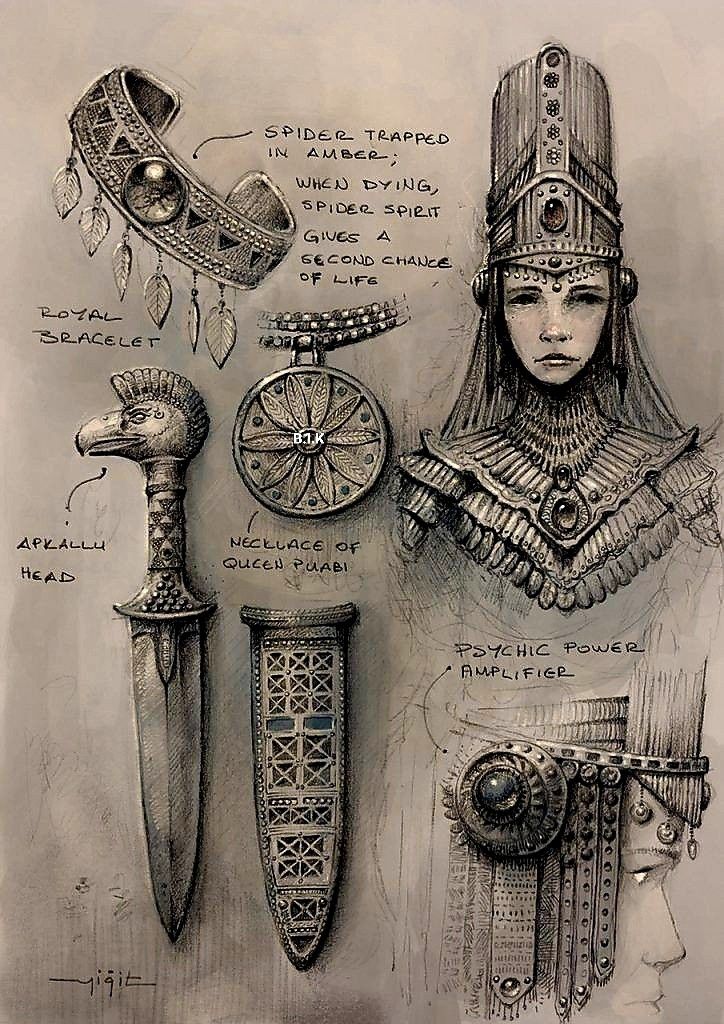 SPIDER TRAPPED
IN AMBER;
WHEN DYING,
SPIDER SPIRIT
GIVES A
SECOND CHANCE
OF LIFE
ROYAL
BRACELET
B.I.K
APKALLU
HEAD
NECKLACE OF
QUEEN PUABI
PSYCHIC POWER
AMPLIFIER
yiğit